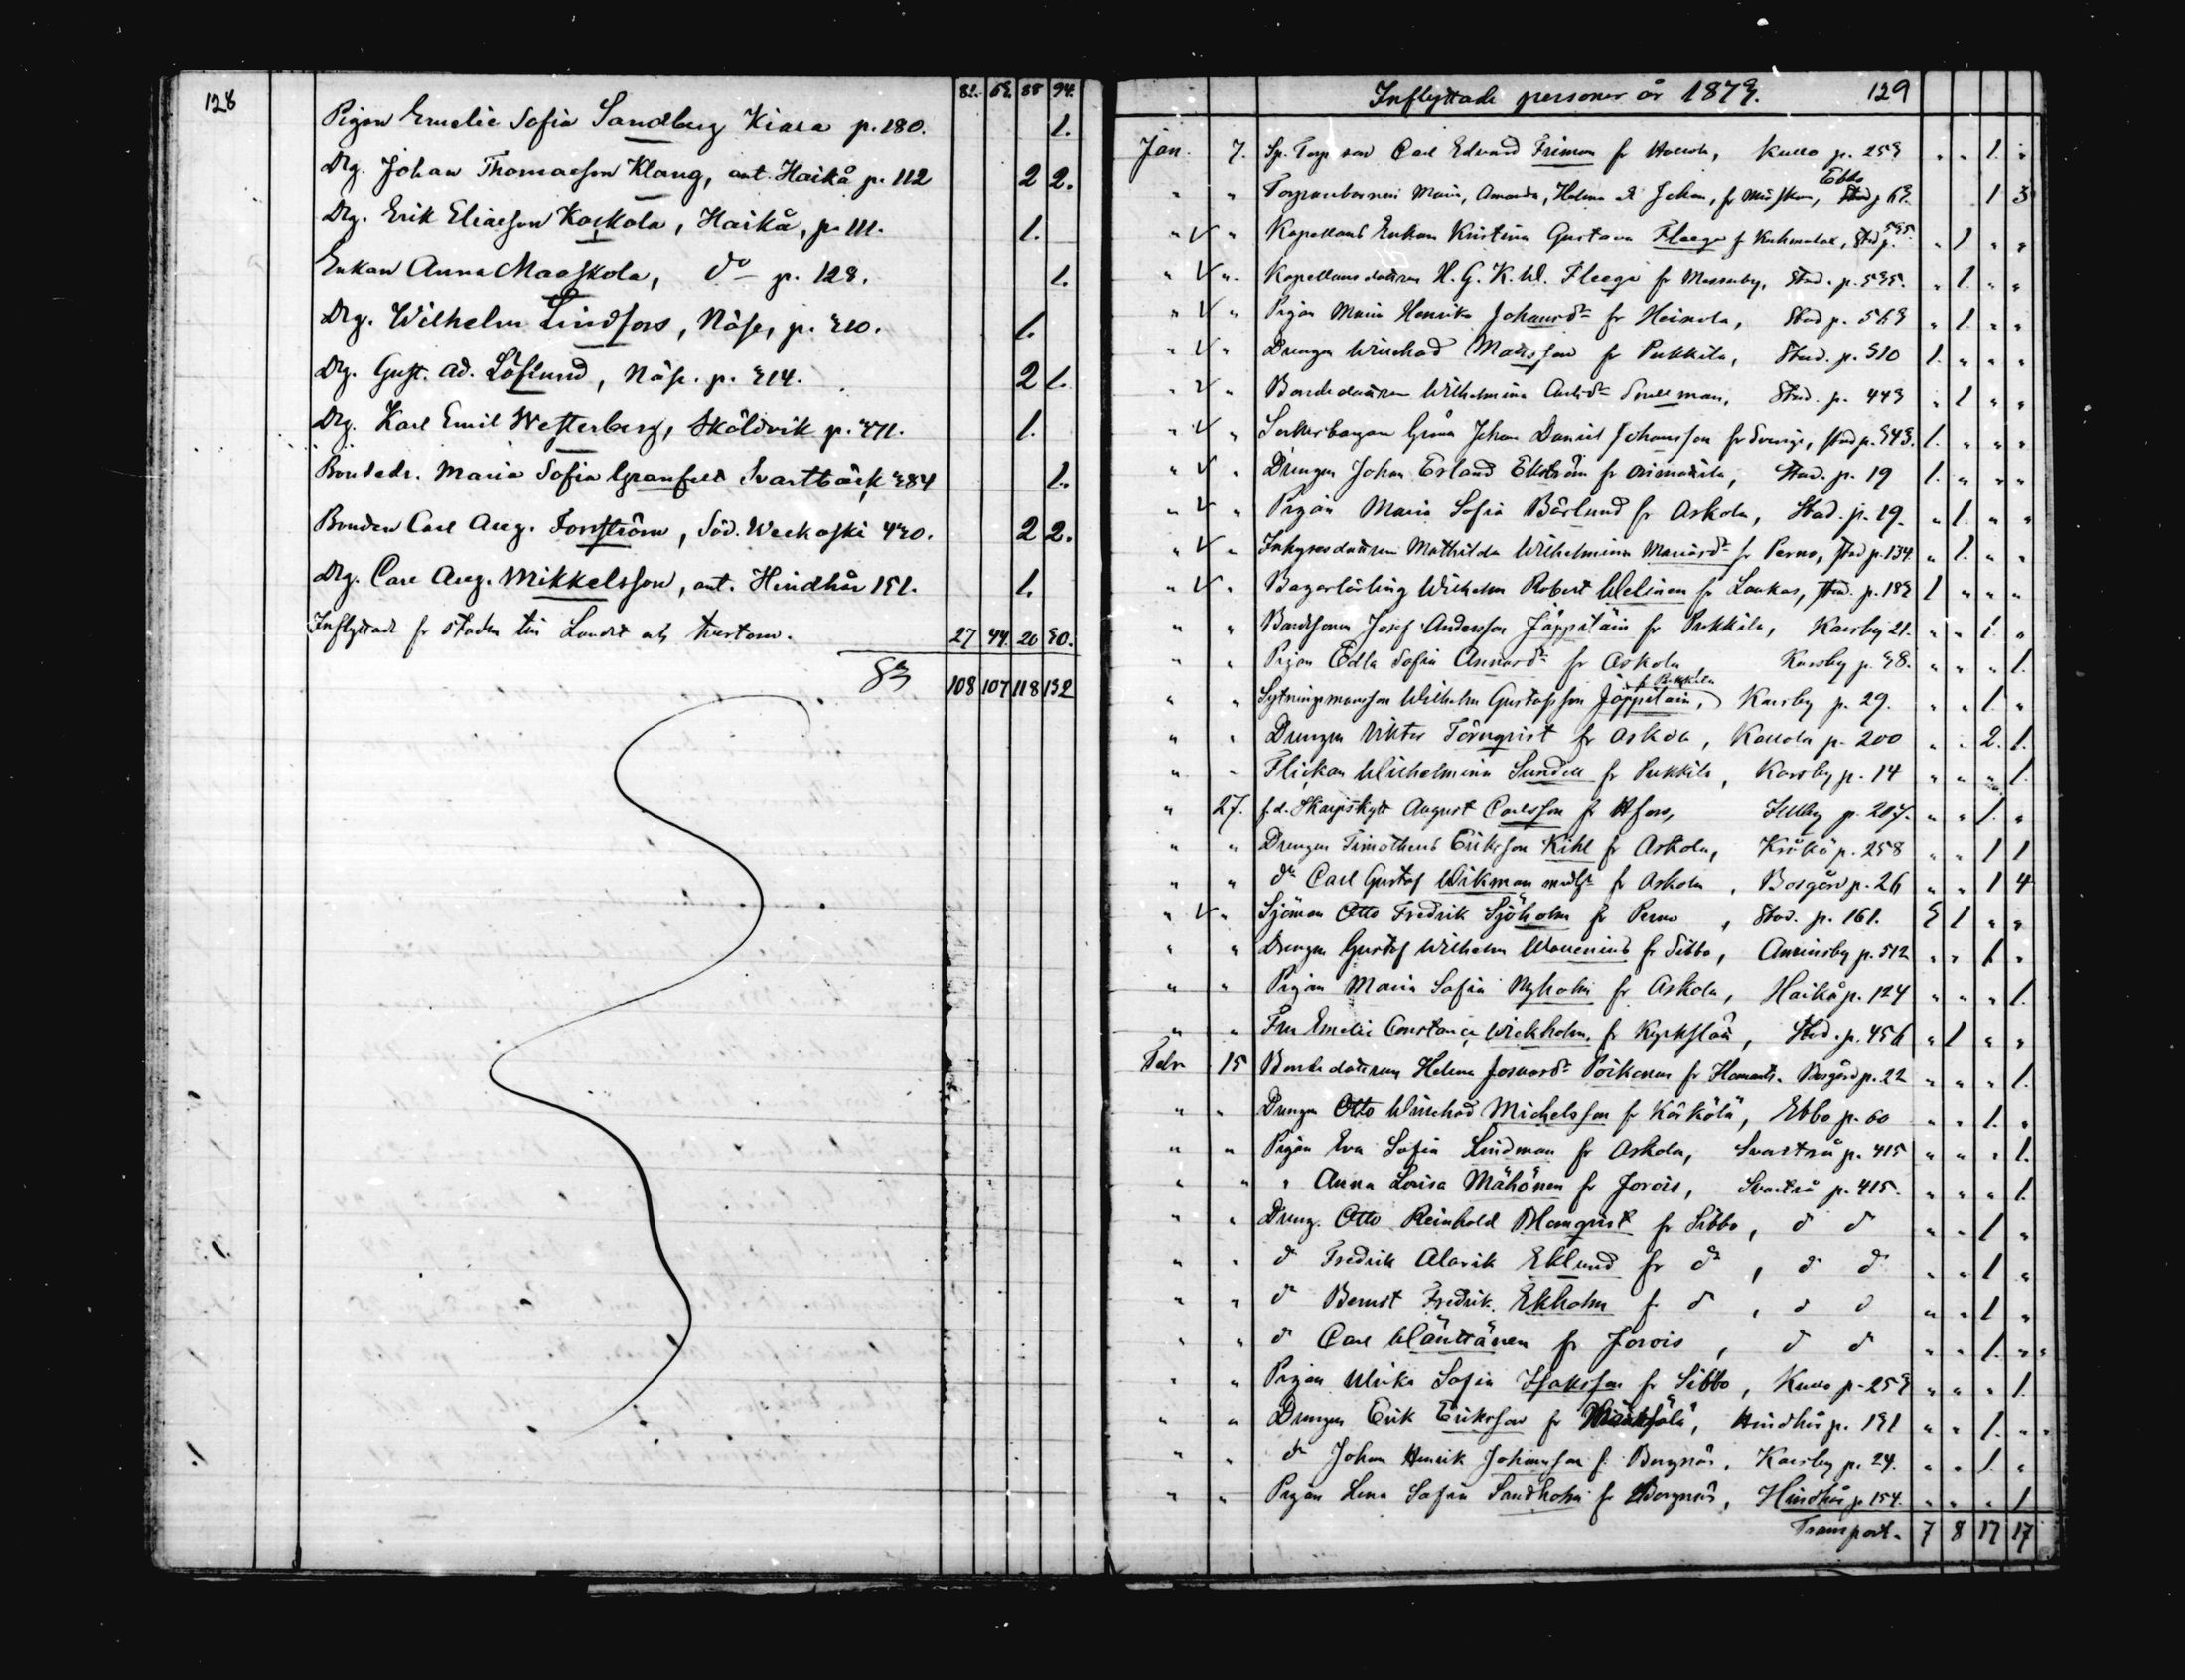 128
81. 63. 88 94.
Pigan Emelie Sofia Sandberg Kiala p. 180. 1.
Drg. Johan Thomasson Klang, ant. Haikå p. 112 2 2.
Drg. Erik Eliasson Koskola, Haikå, p. 111. 1.
Enkan Anna Maaskola, do p. 128. 1.
Drg. Wilhelm Lindfors, Näse, p. 310. 1.
Drg. Gust. Ad. Löflund, Näse. p. 314. 2 1.
Drg. Karl Emil Westerberg, Sköldvik p. 371. 1.
Bondedr. Maria Sofia Granfelt Svartbäck 384 1.
Bonden Carl Aug. Forsström, Söd. Weckoski 430. 2 2.
Drg. Carl Aug. Mikkelsson, ant. Hindhår 151. 1.
Inflyttade fr staden till Landet och tvertom. 27 44. 20 30.
108 107 118 132
Inflyttade personer år 1873. 129
Jan. 7. Sp. Torp. son Carl Edvard Friman fr Hollola, Kullo p. 253 " " 1. "
" " Torparebarnen Maria, Amanda, Helena o Johan, fr Mörskom, Ebbo p. 63. 1 3
" V " Kapellans Enkan Kristina Gustava Fleege fr Kuhmalax, Stad p. 535. " 1 " "
" V " Kapellansdottren H. G. K. W. Fleege fr Messuby, Stad. p. 535. " 1. " "
" V " Pigan Maria Henrika Johansdr fr Heinola, Stad p. 563 " 1. " "
" V " Drengen Winehad Matsson fr Pukkila, Stad. p. 510 1. " " "
" V " Bondedottren Wilhelmina Carlsdr Snellman, Stad. p. 443 " 1 " "
" V " Sockerbagare Johan Daniel Johansson fr Sverige, Stad p. 343. 1. " " "
" V " Drengen Johan Erland Ekström fr Artsjö, Stad. p. 19 1. " " "
" V " Pigan Maria Sofia Bärlund fr Askola, Stad. p. 19. " 1. " "
" V " Inhysesdottren Mathilda Wilhelmina Mariasdr fr Perno, Stad p. 134 " 1. " "
" V " Bagarlärling Wilhelm Robert Welinen fr Laukas, Stad. p. 183 1 " " "
" " Bondesonen Josef Andersson Jäppiläin fr Pukkila, Karsby 21. " " 1. "
" " Pigan Edla Sofia Annasdr fr Askola, Karsby p. 38. " " " 1.
" " Sytningsmansson Wilhelm Gustafsson Jäppiläin, fr Pukkila Karsby p. 29. " " 1. "
" " Drengen Viktor Törnqvist fr Askola, Kallola p. 200 " " 2. 1.
" " Flickan Wilhelmina Sundell fr Pukkila, Karsby p. 14 " " " 1.
" 27. f.d. Skarpskytt August Carlsson fr Hfors, Illby p. 207. " " 1. "
" " Drengen Timotheus Eriksson Kihl fr Askola, Kråkö p. 258 " " 1 1
" " dr Carl Gustaf Wikman m hu fr Askola, Borgård p. 26 " " 1 4
" V " Sjöman Otto Fredrik Sjöholm fr Perno, Stad. p. 161. 3 1 " "
" " Drengen Gustaf Wilhelm Wallenius fr Sibbo, Anninsby p. 512 " " 1. "
" " Pigan Maria Sofia Nyholm fr Askola, Haikå p. 124 " " " 1.
" " Fru Emelie Constance Wickholm, fr Kyrkslätt, Stad. p. 456 " 1 " "
Febr 15 Bondedottren Helena Josuasdr Poikonen fr Borgård p. 22 " " " 1.
" " Drengen Otto Winehad Michelsson fr Kärkölä, Ebbo p. 60 " " 1. "
" " Pigan Eva Sofia Lindman fr Askola, Svartså p. 415 " " " 1.
" " " Anna Lovisa Mähönen fr Jorois, Svartså p. 415. " " " 1.
" " Dreng. Otto Reinhold Blomqvist fr Sibbo, d d " " 1 "
" " d Fredrik Alarik Eklund fr d, d d " " 1 "
" " d Berndt Fredrik Ekholm fr d, d d " " 1 "
" " d Carl Wänttänen fr Jorois, d d " " 1. "
" " Pigan Ulrika Sofia Isaksson fr Sibbo, Kullo p. 253 " " " 1.
" " Drengen Erik Eriksson fr Mäntsälä, Hindhår p. 131 " " 1. "
" " d Johan Henrik Johansson fr Borgnäs, Karsby p. 24. " " 1. "
" " Pigan Lena Sofia Sandholm fr Borgnäs, Hindhår p. 154. " " " 1
Transport. 7 8 17 17